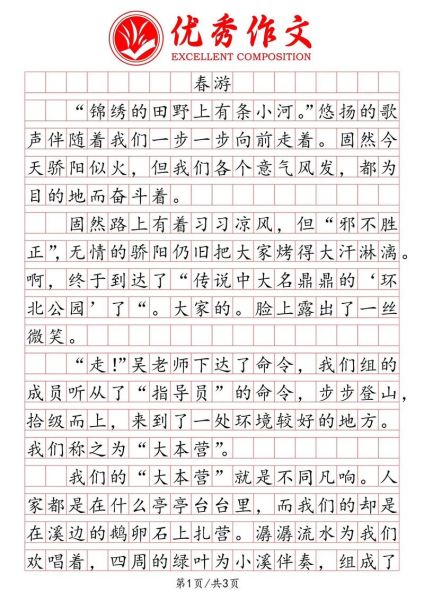 优秀作文
EXCELLENT COMPOSITION
春游
“锦绣的田野上有条小河。”悠扬的歌
声伴随着我们一步一步向前走着。固然今
天骄阳似火，但我们各个意气风发，都为
目的地而奋斗着。
固然路上有着习习凉风，但“邪不胜
正”，无情的骄阳仍旧把大家烤得大汗淋漓。
啊，终于到达了“传说中大名鼎鼎的‘环
北公园’了“。大家的。脸上露出了一丝
微笑。
“走！”吴老师下达了命令，我们组的
成员听从了“指导员”的命令，步步登山，
拾级而上，来到了一处环境较好的地方。
我们称之为“大本营”。
我们的“大本营”就是不同凡响。人
家都是在什么亭亭台台里，而我们的却是
在溪边的鹅卵石上扎营。潺潺流水为我们
欢唱着，四周的绿叶为小溪伴奏，组成了
第1页/共3页